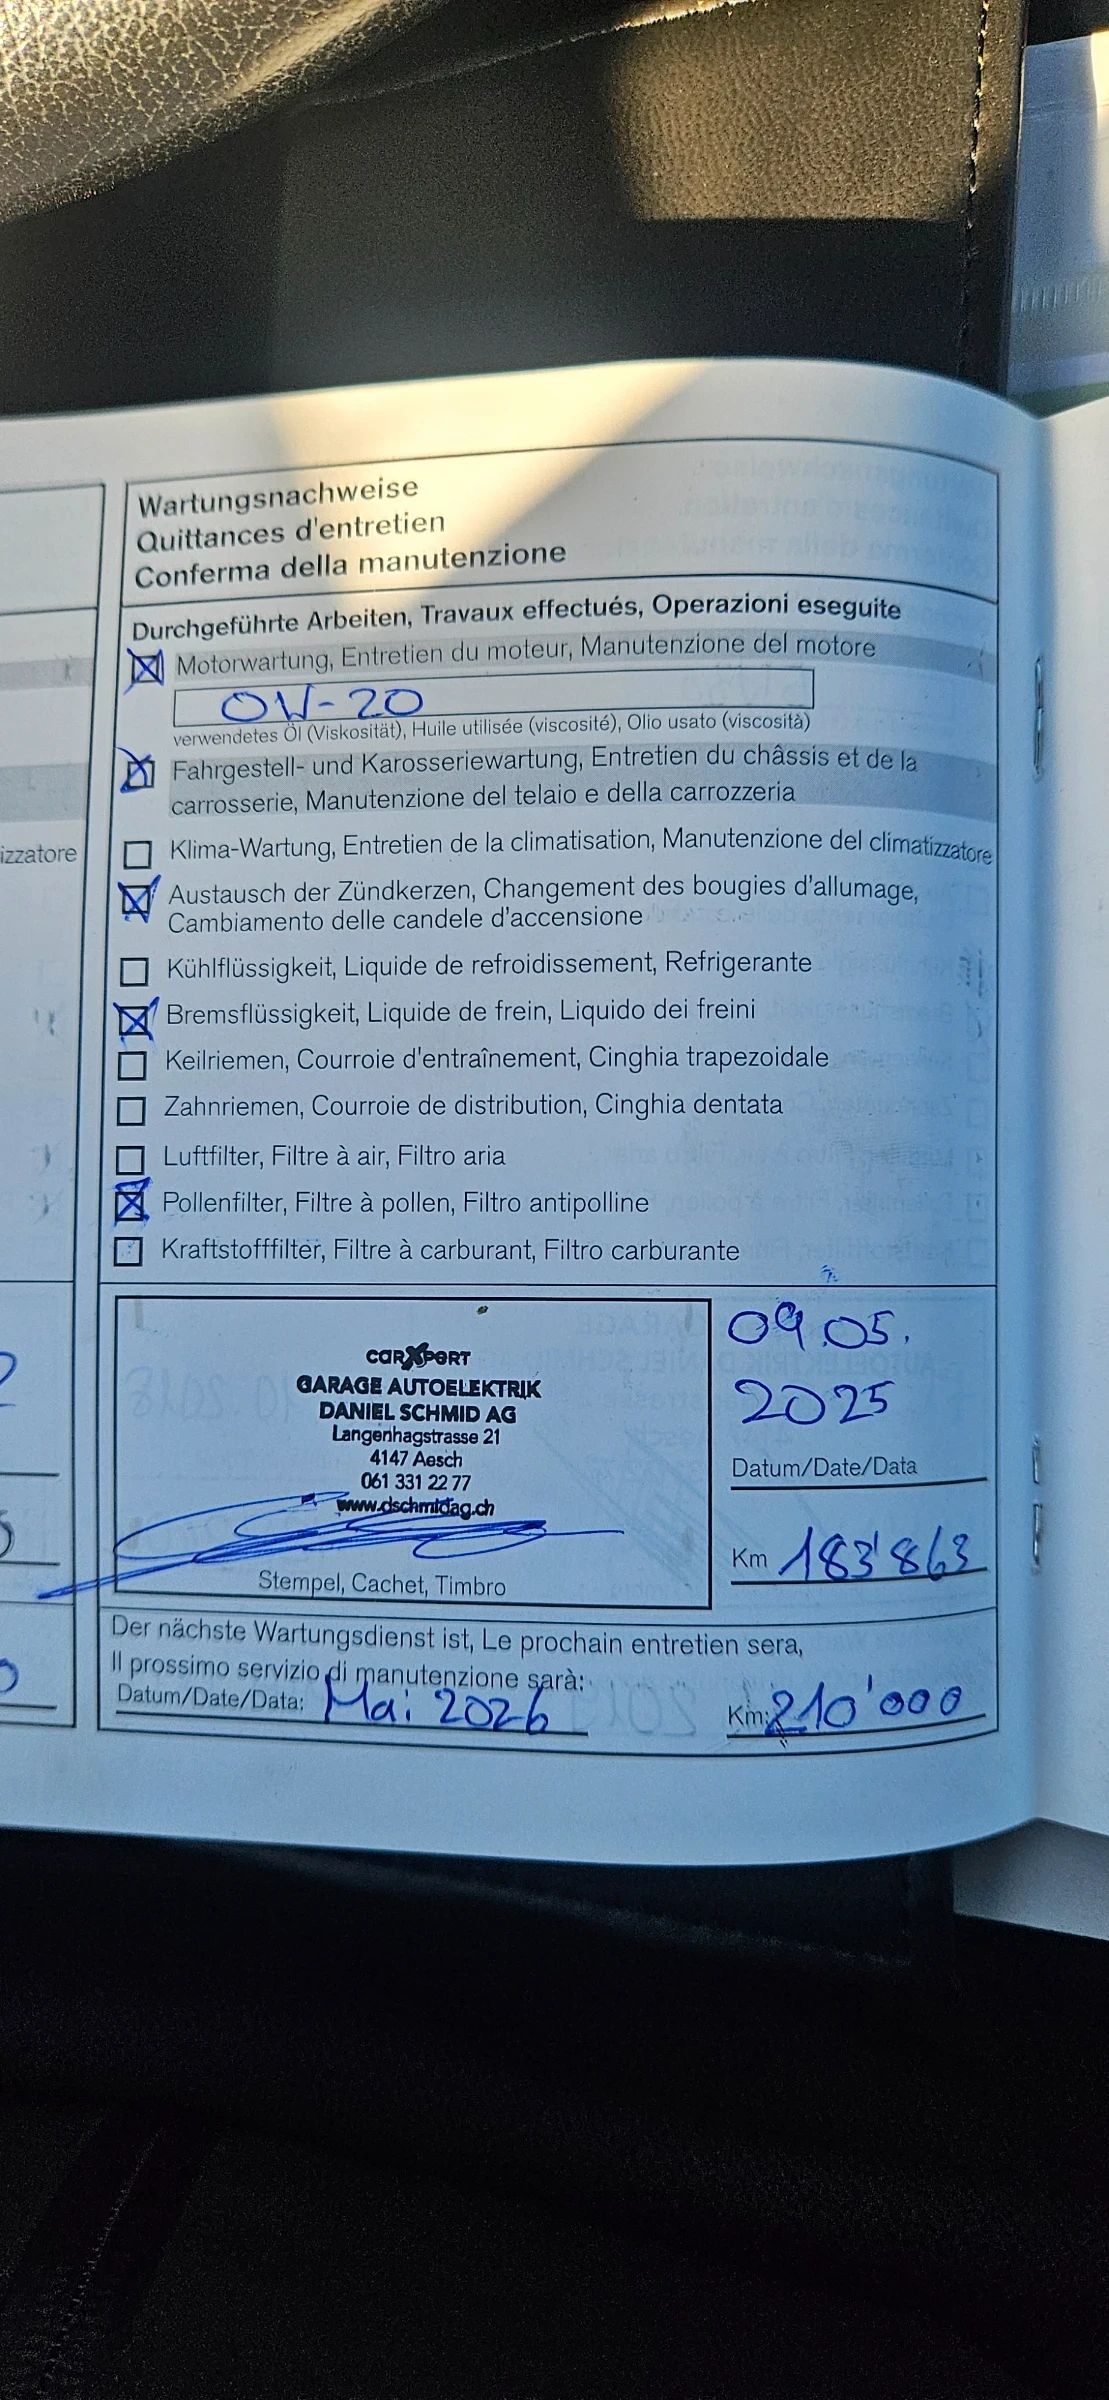 Wartungsnachweise
Quittances d'entretien
Conferma della manutenzione
Durchgeführte Arbeiten, Travaux effectués, Operazioni eseguite
Motorwartung, Entretien du moteur, Manutenzione del motore
0W-20
verwendetes Öl (Viskosität), Huile utilisée (viscosité), Olio usato (viscosità)
Fahrgestell- und Karosseriewartung, Entretien du châssis et de la
carrosserie, Manutenzione del telaio e della carrozzeria
izzatore
Klima-Wartung, Entretien de la climatisation, Manutenzione del climatizzatore
Austausch der Zündkerzen, Changement des bougies d'allumage,
Cambiamento delle candele d'accensione
Kühlflüssigkeit, Liquide de refroidissement, Refrigerante
Bremsflüssigkeit, Liquide de frein, Liquido dei freini
Keilriemen, Courroie d'entraînement, Cinghia trapezoidale
Zahnriemen, Courroie de distribution, Cinghia dentata
Luftfilter, Filtre à air, Filtro aria
Pollenfilter, Filtre à pollen, Filtro antipolline
Kraftstofffilter, Filtre à carburant, Filtro carburante
carXpert
GARAGE AUTOELEKTRIK
DANIEL SCHMID AG
Langenhagstrasse 21
4147 Aesch
061 331 22 77
www.dschmidag.ch
Stempel, Cachet, Timbro
09.05.
2025
Datum/Date/Data
Km 183'863
Der nächste Wartungsdienst ist, Le prochain entretien sera,
Il prossimo servizio di manutenzione sarà:
Datum/Date/Data: Mai 2026 Km: 210'000